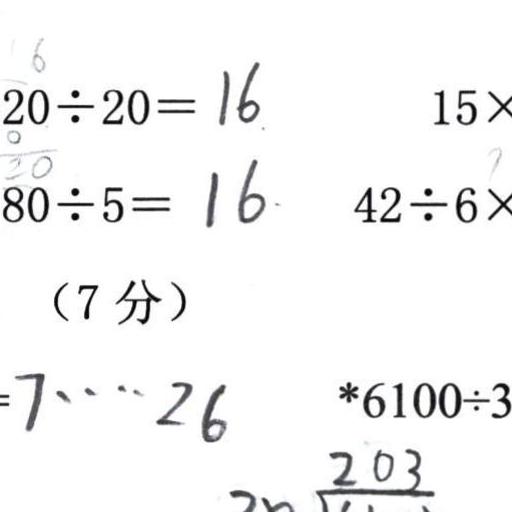 6
20÷20=16 15×
0
20
80÷5=16 42÷6×
(7 分)
=7····26 *6100÷3
203